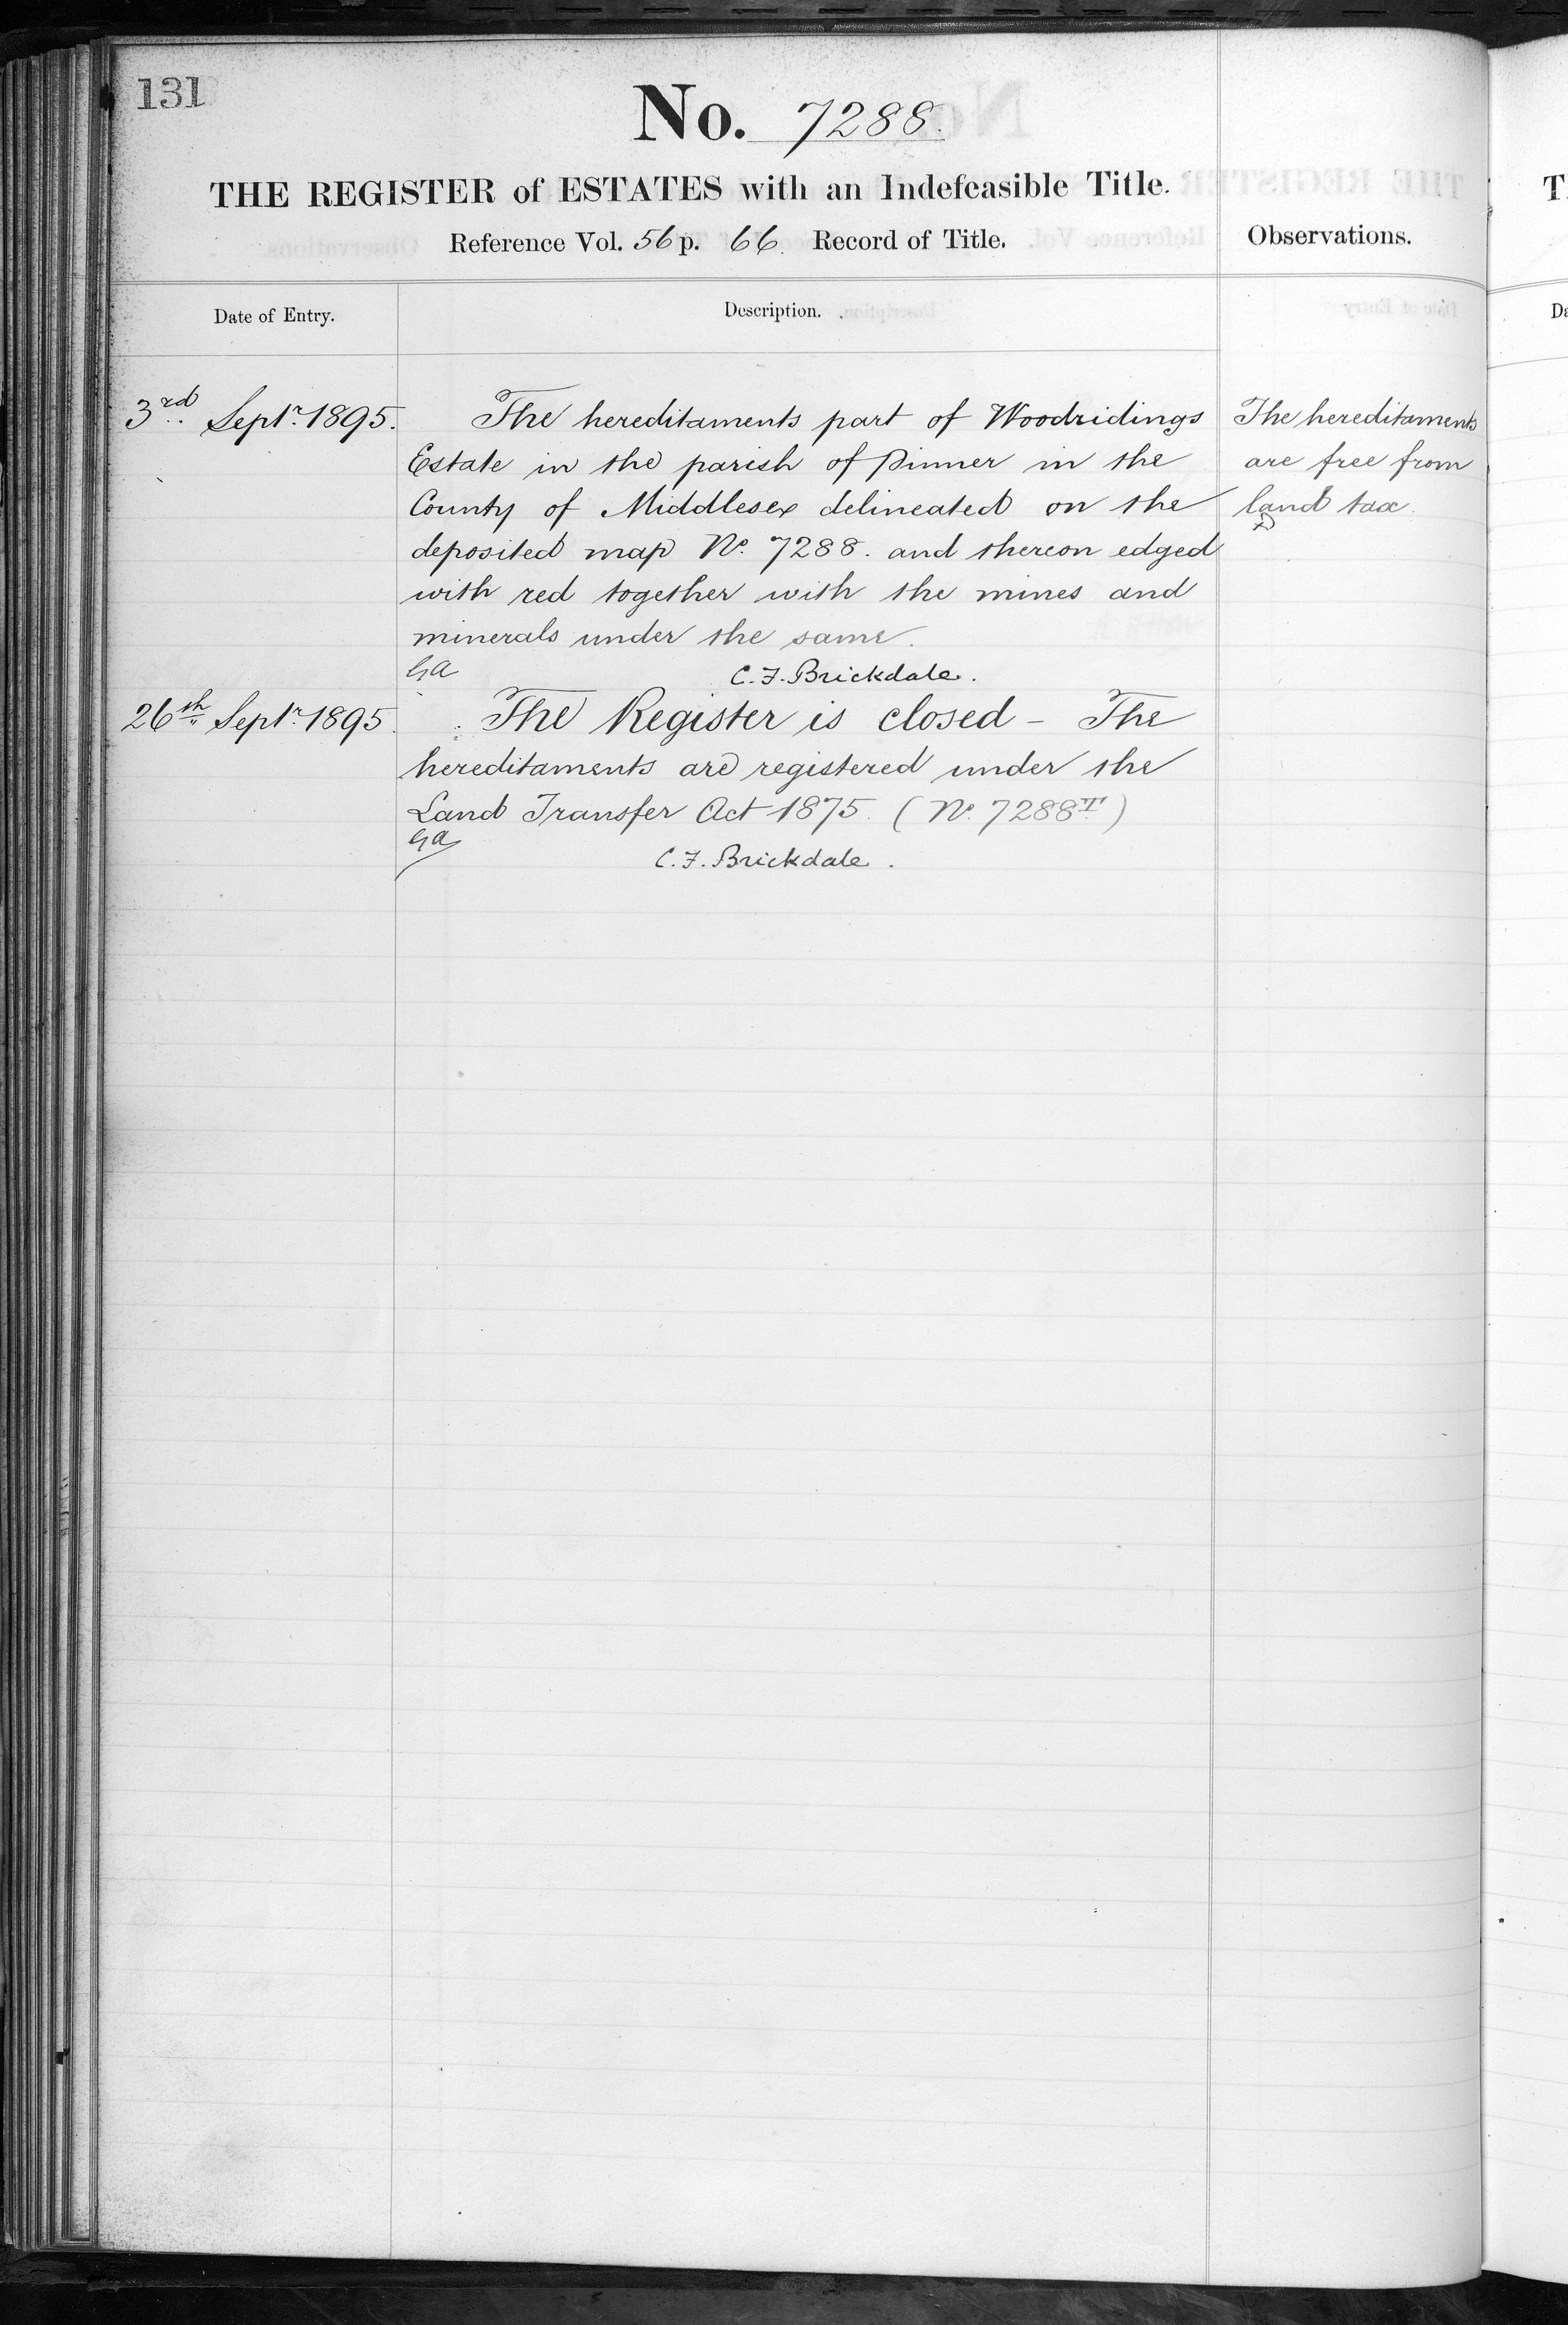 131
No. 7288.
THE REGISTER of ESTATES with an Indefeasible Title.
Reference Vol. 56 p. 66 Record of Title.
Observations.
Date of Entry.
Description.
3rd Septr. 1895.
The hereditaments part of Woodridings
Estate in the parish of Pinner in the
County of Middlesex delineated on the
deposited map No. 7288. and thereon edged
with red together with the mines and
minerals under the same.
GA
C. F. Brickdale.
The hereditaments
are free from
land tax.
26th Septr. 1895.
The Register is closed - The
hereditaments are registered under the
Land Transfer Act 1875. (No. 7288T)
GA
C. F. Brickdale.